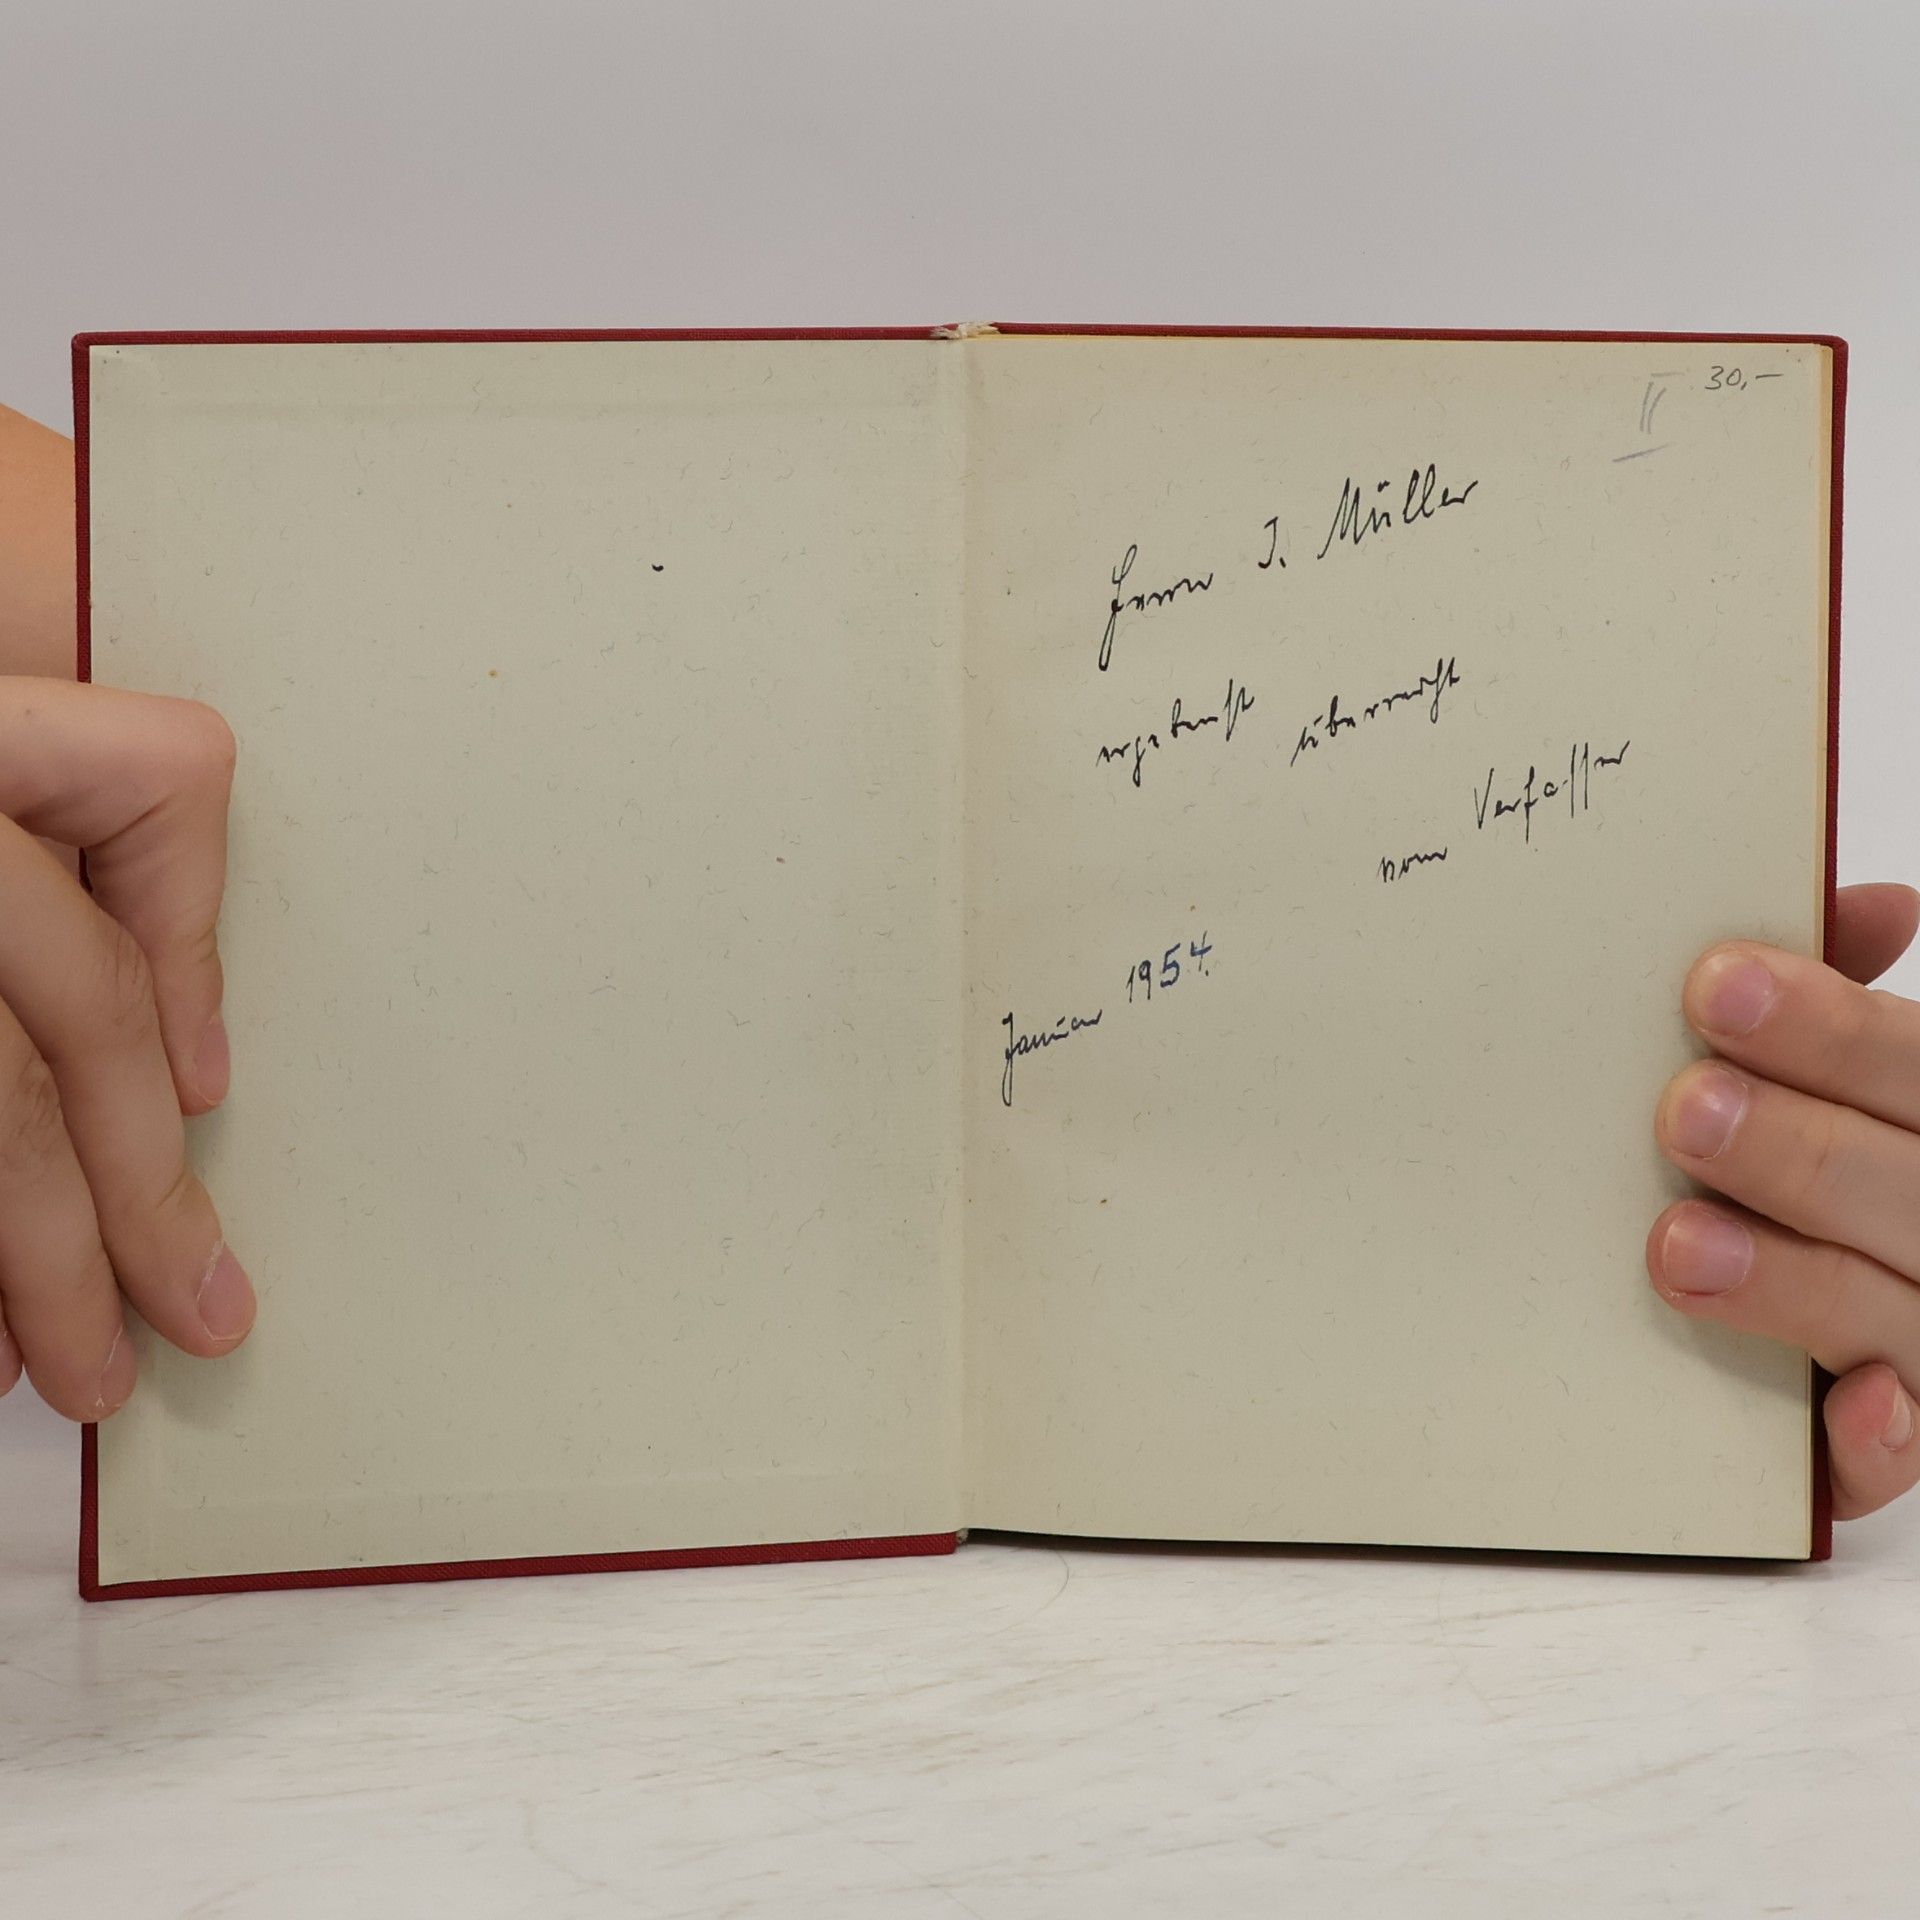 30,—
II
Herrn J. Müller
ergebenst überreicht
vom Verfasser
Januar 1954.